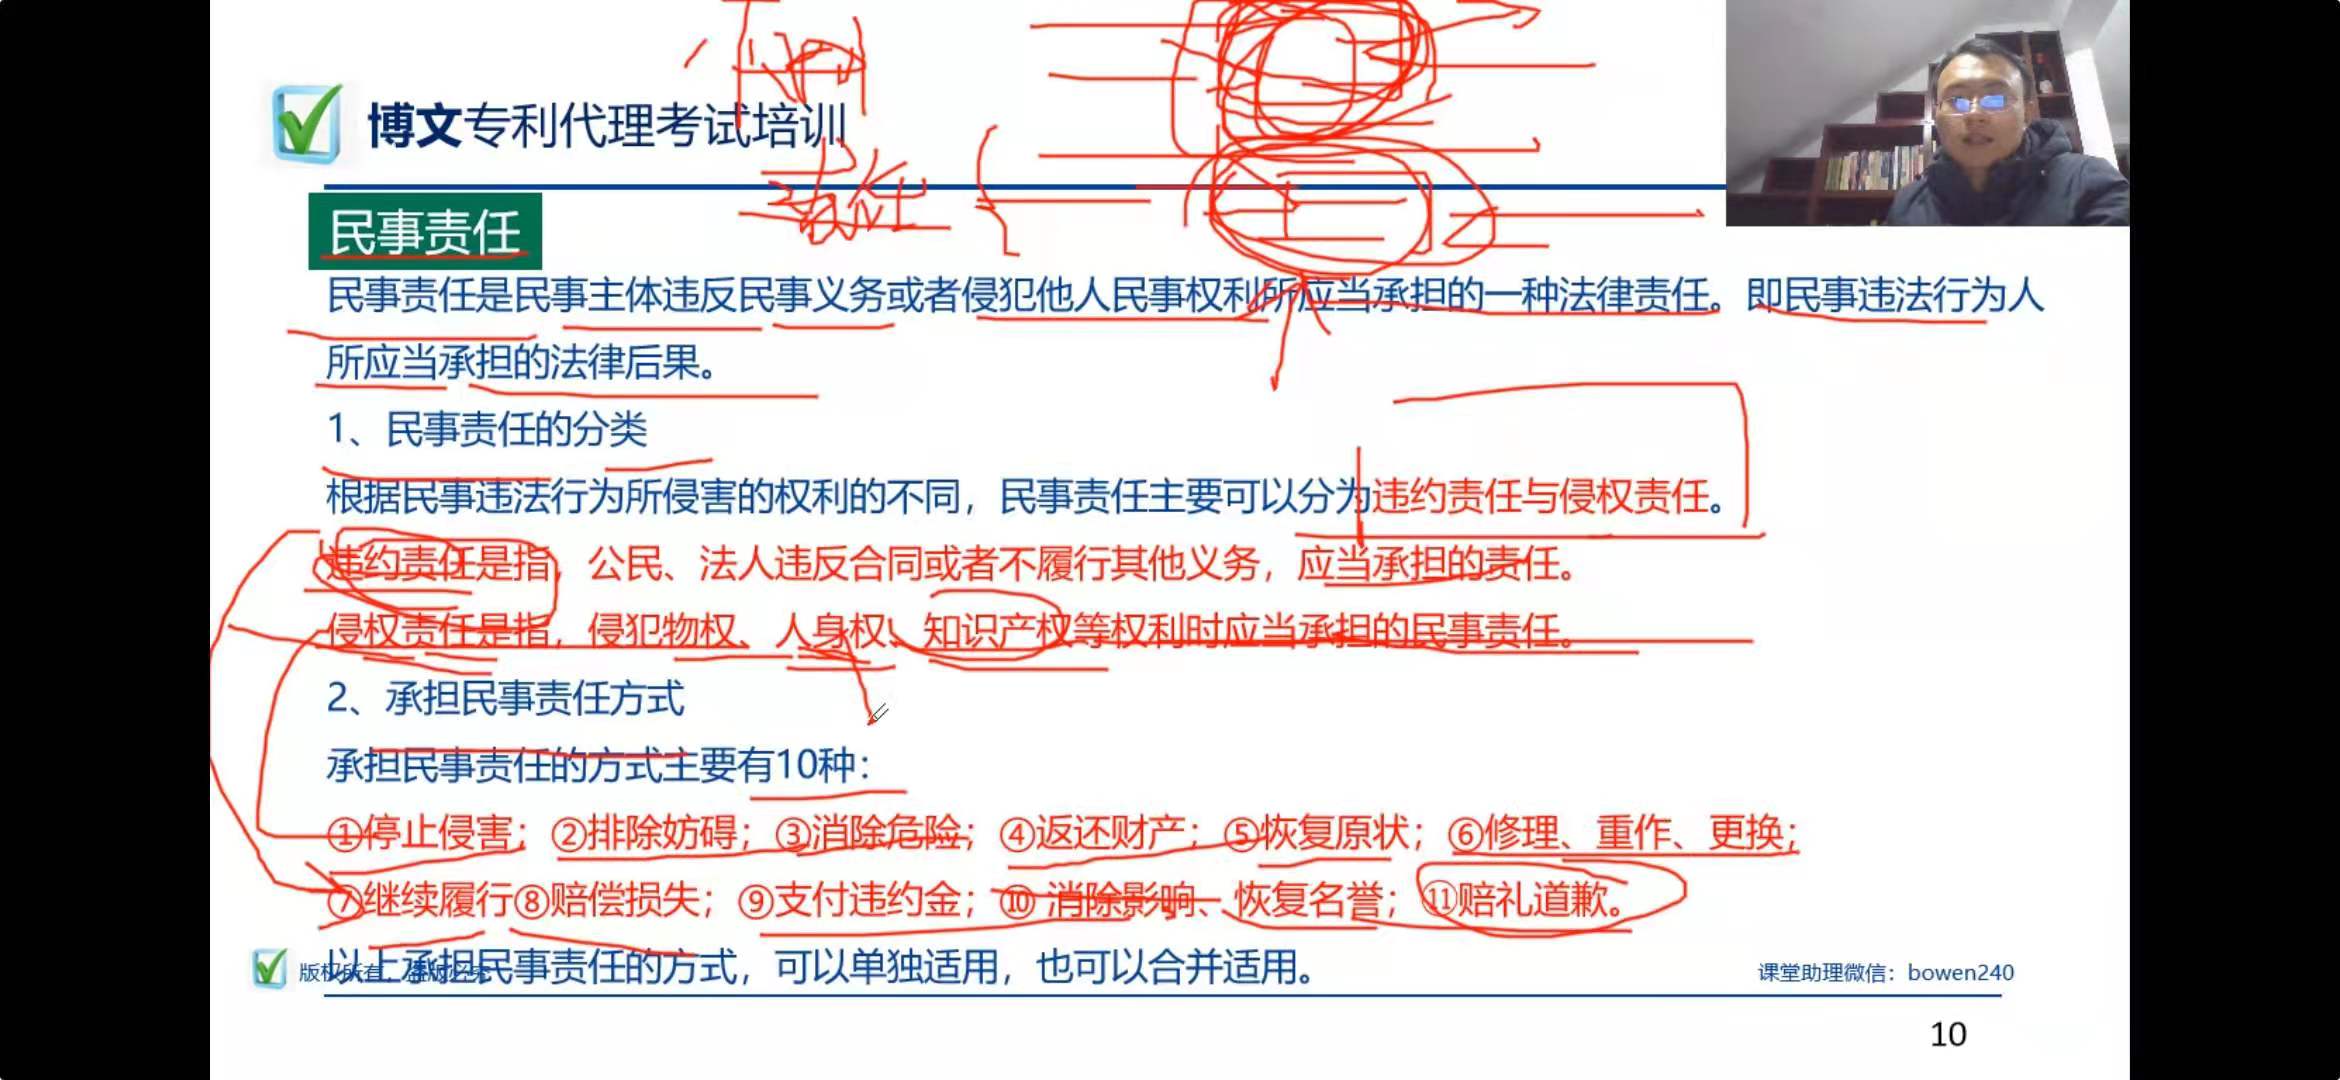 博文专利代理考试培训
责任
民事责任
民事责任是民事主体违反民事义务或者侵犯他人民事权利所应当承担的一种法律责任。即民事违法行为人
所应当承担的法律后果。
1、民事责任的分类
根据民事违法行为所侵害的权利的不同，民事责任主要可以分为违约责任与侵权责任。
违约责任是指，公民、法人违反合同或者不履行其他义务，应当承担的责任。
侵权责任是指，侵犯物权、人身权、知识产权等权利时应当承担的民事责任。
2、承担民事责任方式
承担民事责任的方式主要有10种：
①停止侵害；②排除妨碍；③消除危险；④返还财产；⑤恢复原状；⑥修理、重作、更换；
⑦继续履行⑧赔偿损失；⑨支付违约金；⑩ 消除影响、恢复名誉；⑪赔礼道歉。
以上承担民事责任的方式，可以单独适用，也可以合并适用。
版权所有，盗版必究
课堂助理微信：bowen240
10